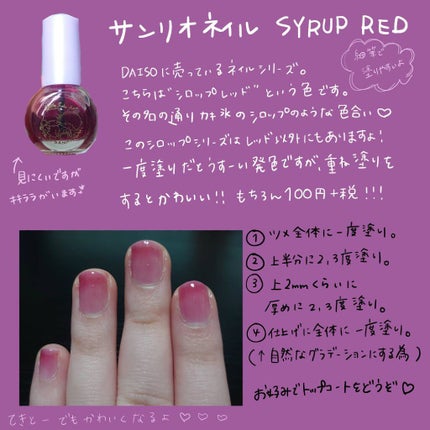 サンリオネイル SYRUP RED
細筆で
塗りやすいよ
DAISOに売っているネイルシリーズ。
こちらは"シロップレッド"という色です。
その名の通りカキ氷のシロップのような色合い♡
このシロップシリーズはレッド以外にもありますよ!
一度塗りだとうすーい発色ですが、重ね塗りを
するとかわいい!! もちろん100円+税!!!
↑
見にくいですが
キキララがいます♪
① ツメ全体に一度塗り。
② 上半分に2,3度塗り。
③ 上2mmくらいに
厚めに2,3度塗り。
④ 仕上げに全体に一度塗り。
(↑自然なグラデーションにする為)
お好みでトップコートをどうぞ♡
てきとーでもかわいくなるよ♡♡♡